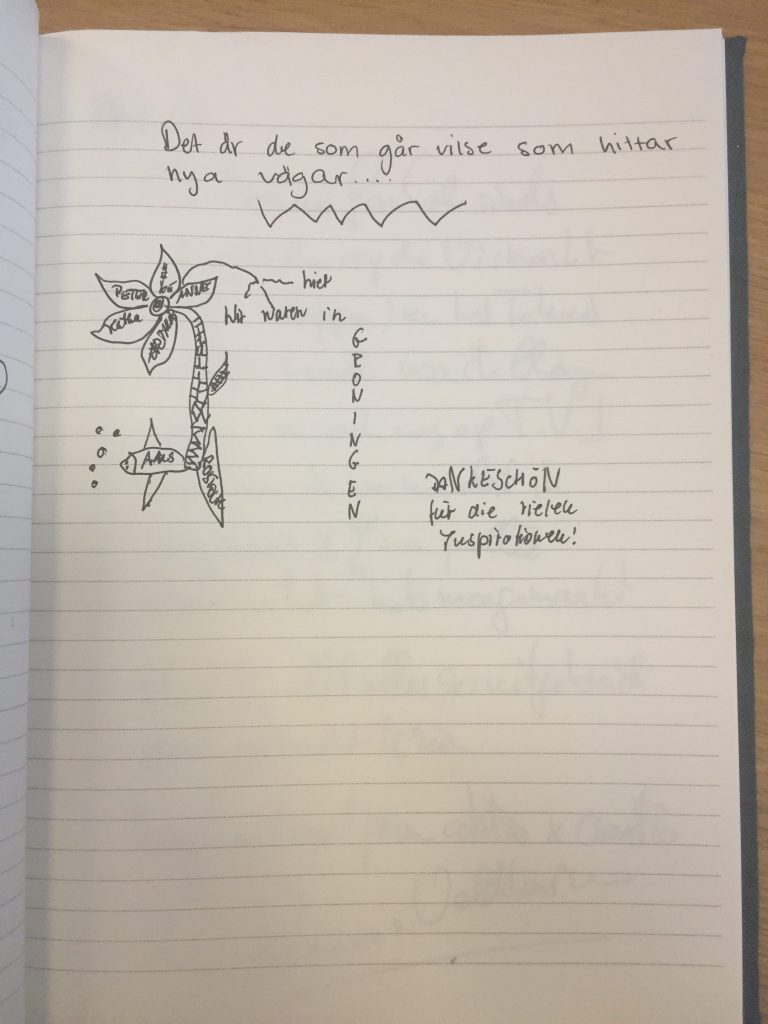 Det är de som går vilse som hittar
nya vägar....
PETER
ANNE
Katha
hier
Wir waren in
GRONINGEN
AALS
DANKESCHÖN
für die vielen
Inspirationen!